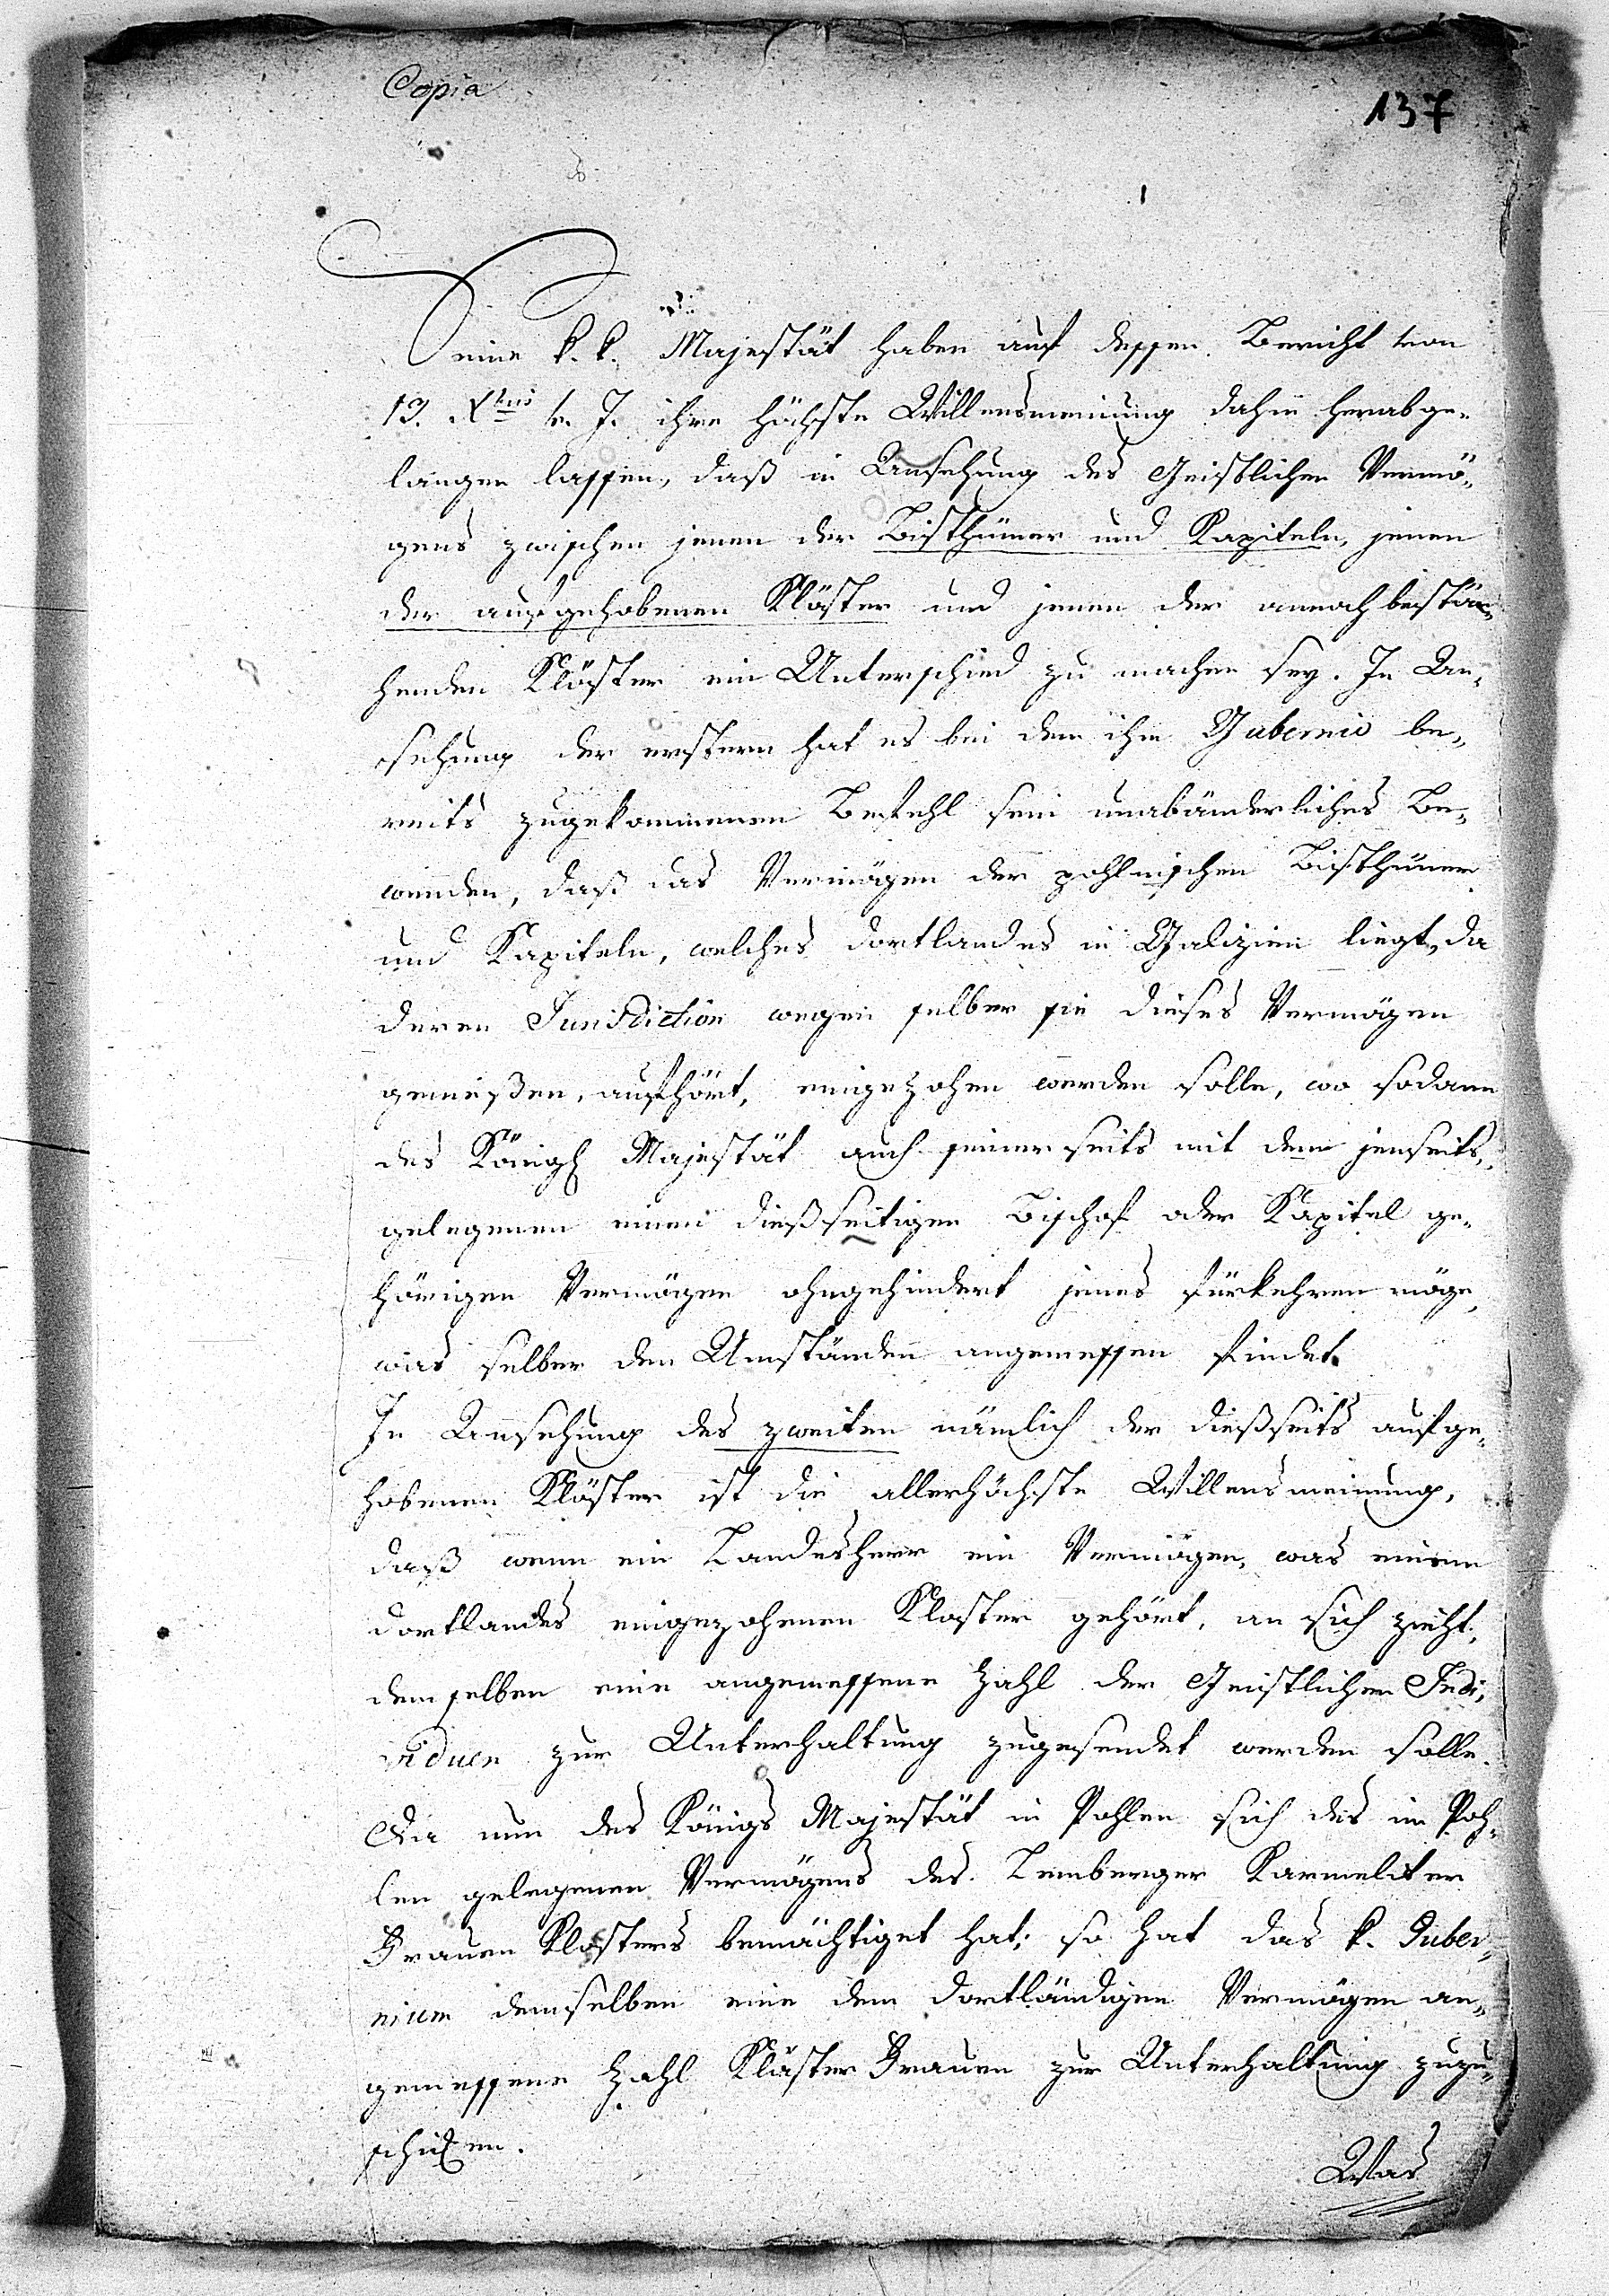 Copia
137
Seine k. k. Majestät haben auf dessen Bericht von
13. Xbris v. J. ihre höchste Willensmeinung dahin herabge-
langen lassen, daß in Ansehung des Geistlichen Vermö-
gens zwischen jenen der Bisthümer und Kapiteln, jenen
der aufgehobenen Klöster und jenen der annoch beste-
henden Klöster ein Unterschied zu machen sey. In An-
sehung der erstern hat es bei dem ihm Gubernio be-
reits zugekommenen Befehl sein unabänderliches Be-
wenden, daß das Vermögen der pohlnischen Bisthümer
und Kapiteln, welches dortlandes in Galizien liegt, da
deren Jurisdiction wegen selber sie dieses Vermögen
genießen, aufhört, eingezohen werden solle, wo sodann
des Königl Majestät auch seiner seits mit dem jenseits
gelegenen einem dießseitigen Bischof oder Kapitel ge-
hörigen Vermögen ohngehindert jenes fürkehren möge,
was selber den Umständen angemessen findet.
In Ansehung des zweiten nämlich der dießseits aufge-
hobenen Klöster ist die allerhöchste Willensmeinung,
daß wenn ein Landesherr ein Vermögen, was einem
dortlandes eingezohenen Kloster gehört, an sich zieht,
demselben eine angemessene Zahl der Geistlichen Indi-
viduen zur Unterhaltung zugesendet werden solle.
Da nun des Königs Majestät in Pohlen sich des in Poh-
len gelegenen Vermögens des Lemberger Karmeliter
Frauen Klosters bemächtiget hat; so hat das k. Guber-
nium demselben eine dem dortländigen Vermögen an-
gemessene Zahl Klöster Frauen zur Unterhaltung zuzu-
schicken.
Was